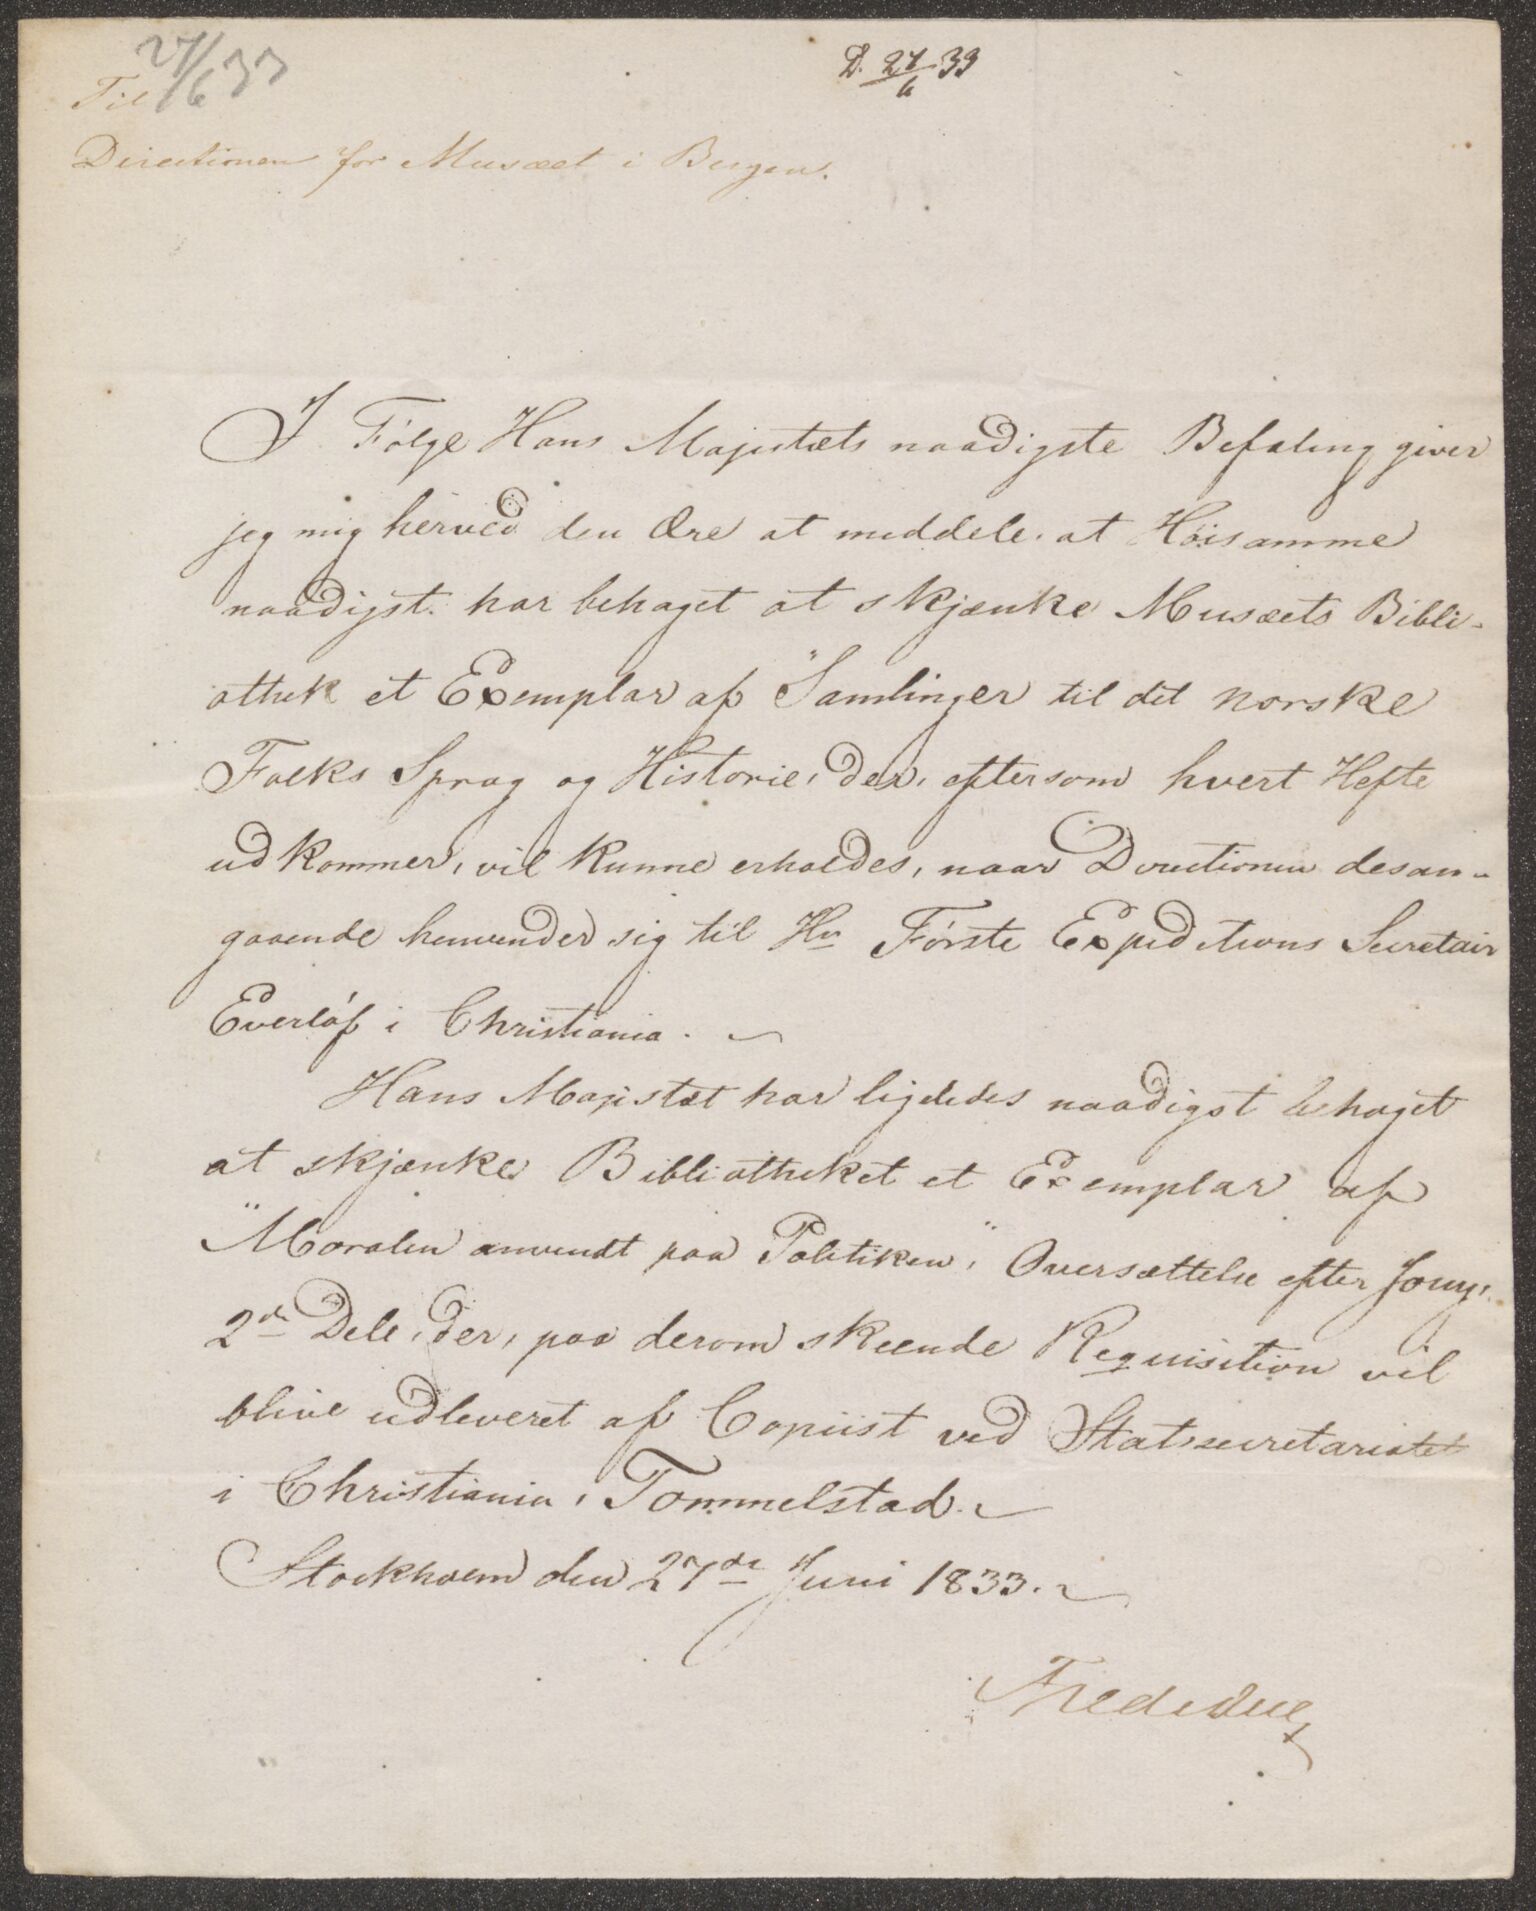 27/6 33
D. 27/6 33
Til
Directionen for Musæet i Bergen.
I Følge Hans Majestæts naadigste Befaling giver
jeg mig herved den Ære at meddele, at Høisamme
naadigst har behaget at skjænke Musæets Bibli-
othek et Exemplar af "Samlinger til det norske
Folks Sprog og Historie, der, eftersom hvert Hefte
udkommer, vil kunne erholdes, naar Directionen desan-
gaaende henvender sig til Hr Første Expeditions Secretair
Everløf i Christiania.
Hans Majestæt har ligeledes naadigst behaget
at skjænke Bibliotheket et Exemplar af
"Moralen anvendt paa Politiken", Oversættelse efter Jouy,
2de Dele, der, paa derom skeende Requisition vil
blive udleveret af Copiist ved Statssecretariatet
i Christiania, Tommelstad.
Stockholm den 27de Juni 1833.
Fred. Due